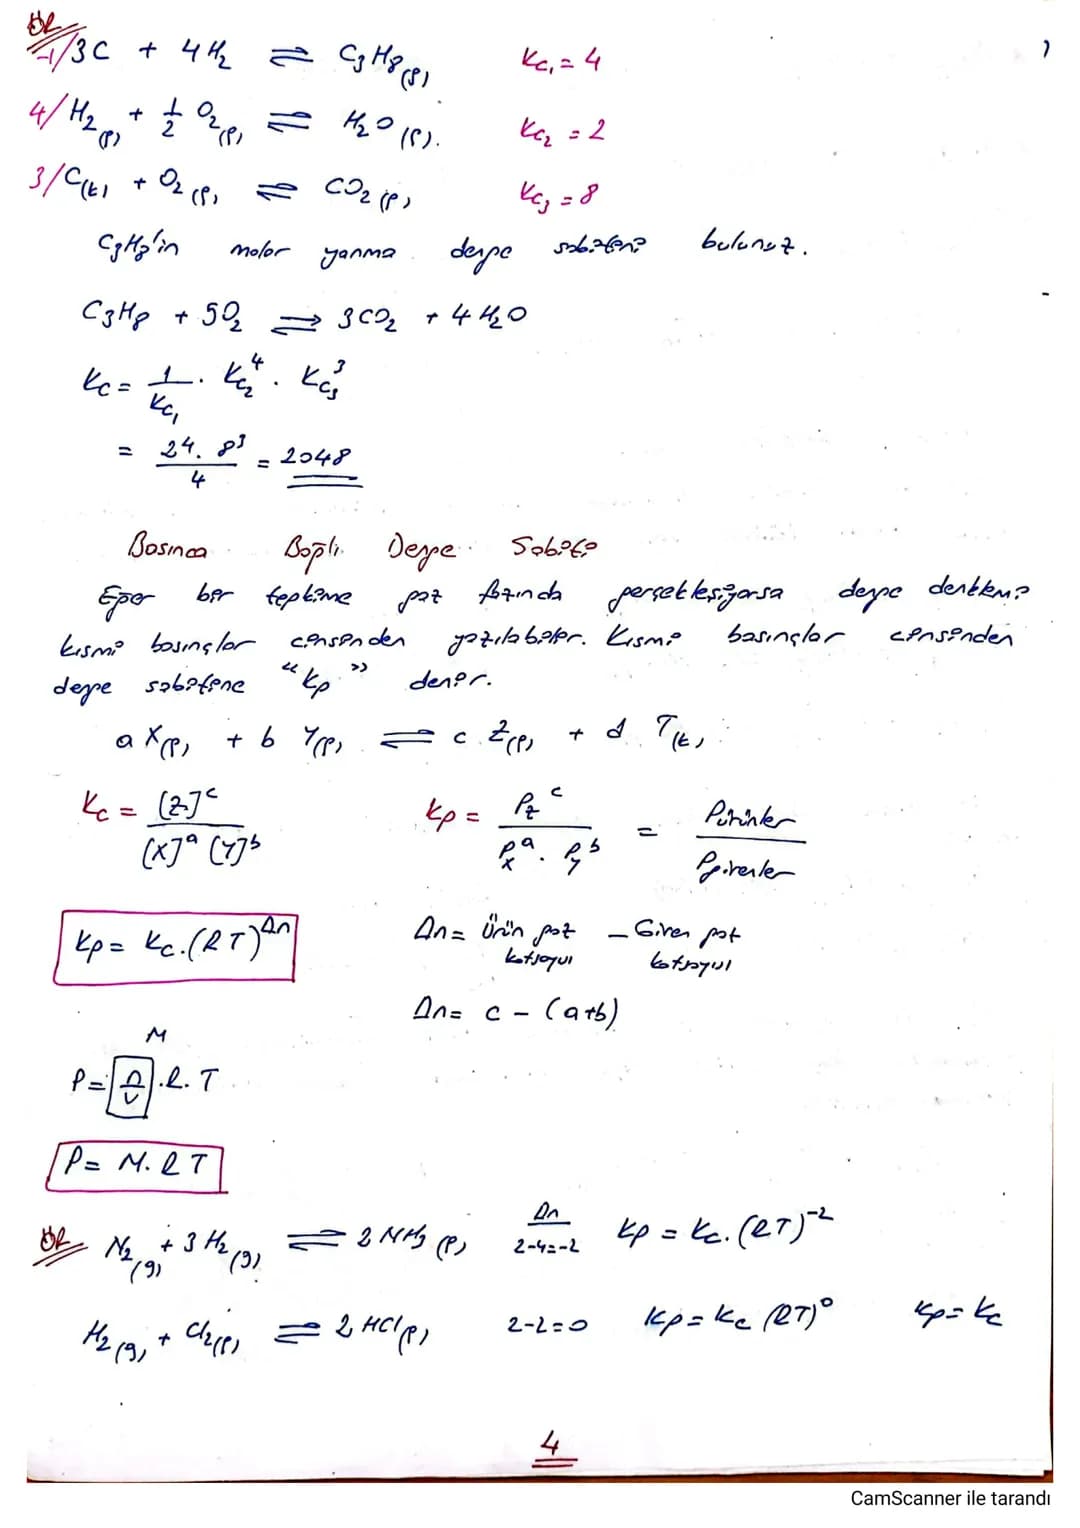 ÖR
-1/ 3C + 4H₂ ⇌ C₃H₈(g) Kc₁ = 4
4/ H₂(g) + 1/2 O₂(g) ⇌ H₂O(g). Kc₂ = 2
3/ C(k) + O₂(g) ⇌ CO₂(g) Kc₃ = 8
C₃H₈'in molar yanma denge sabitini bulunuz.
C₃H₈ + 5O₂ ⇌ 3CO₂ + 4H₂O
Kc = 1/Kc₁ . Kc₂⁴ . Kc₃³
= 2⁴. 8³ / 4 = 2048
Basınca Bağlı Denge Sabiti
Eğer bir tepkime gaz fazında gerçekleşiyorsa denge denklemi
kısmi basınçlar cinsinden yazılabilir. Kısmi basınçlar cinsinden
denge sabitine "Kp" denir.
a X(g) + b Y(g) ⇌ c Z(g) + d T(k)
Kc = [Z]ᶜ / [X]ᵃ [Y]ᵇ Kp = P_Z ᶜ / P_X ᵃ . P_Y ᵇ = Pürünler / Pgirenler
Kp = Kc.(RT)^Δn Δn = Ürün gaz katsayısı - Giren gaz katsayısı
Δn = c - (a+b)
M
P = n/V .R.T
P = M.RT
ÖR N₂(g) + 3H₂(g) ⇌ 2NH₃(g) Δn 2-4=-2 Kp = Kc.(RT)⁻²
H₂(g) + Cl₂(g) ⇌ 2HCl(g) 2-2=0 Kp = Kc (RT)⁰ Kp = Kc
4
CamScanner ile tarandı